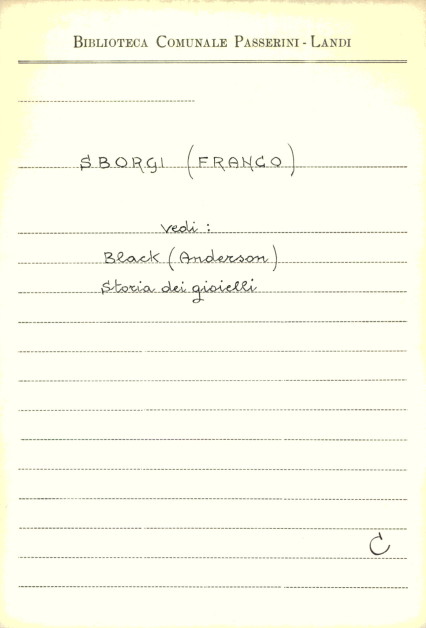 BIBLIOTECA COMUNALE PASSERINI - LANDI
SBORGI (FRANCO)
vedi :
Black (Anderson)
Storia dei gioielli
C